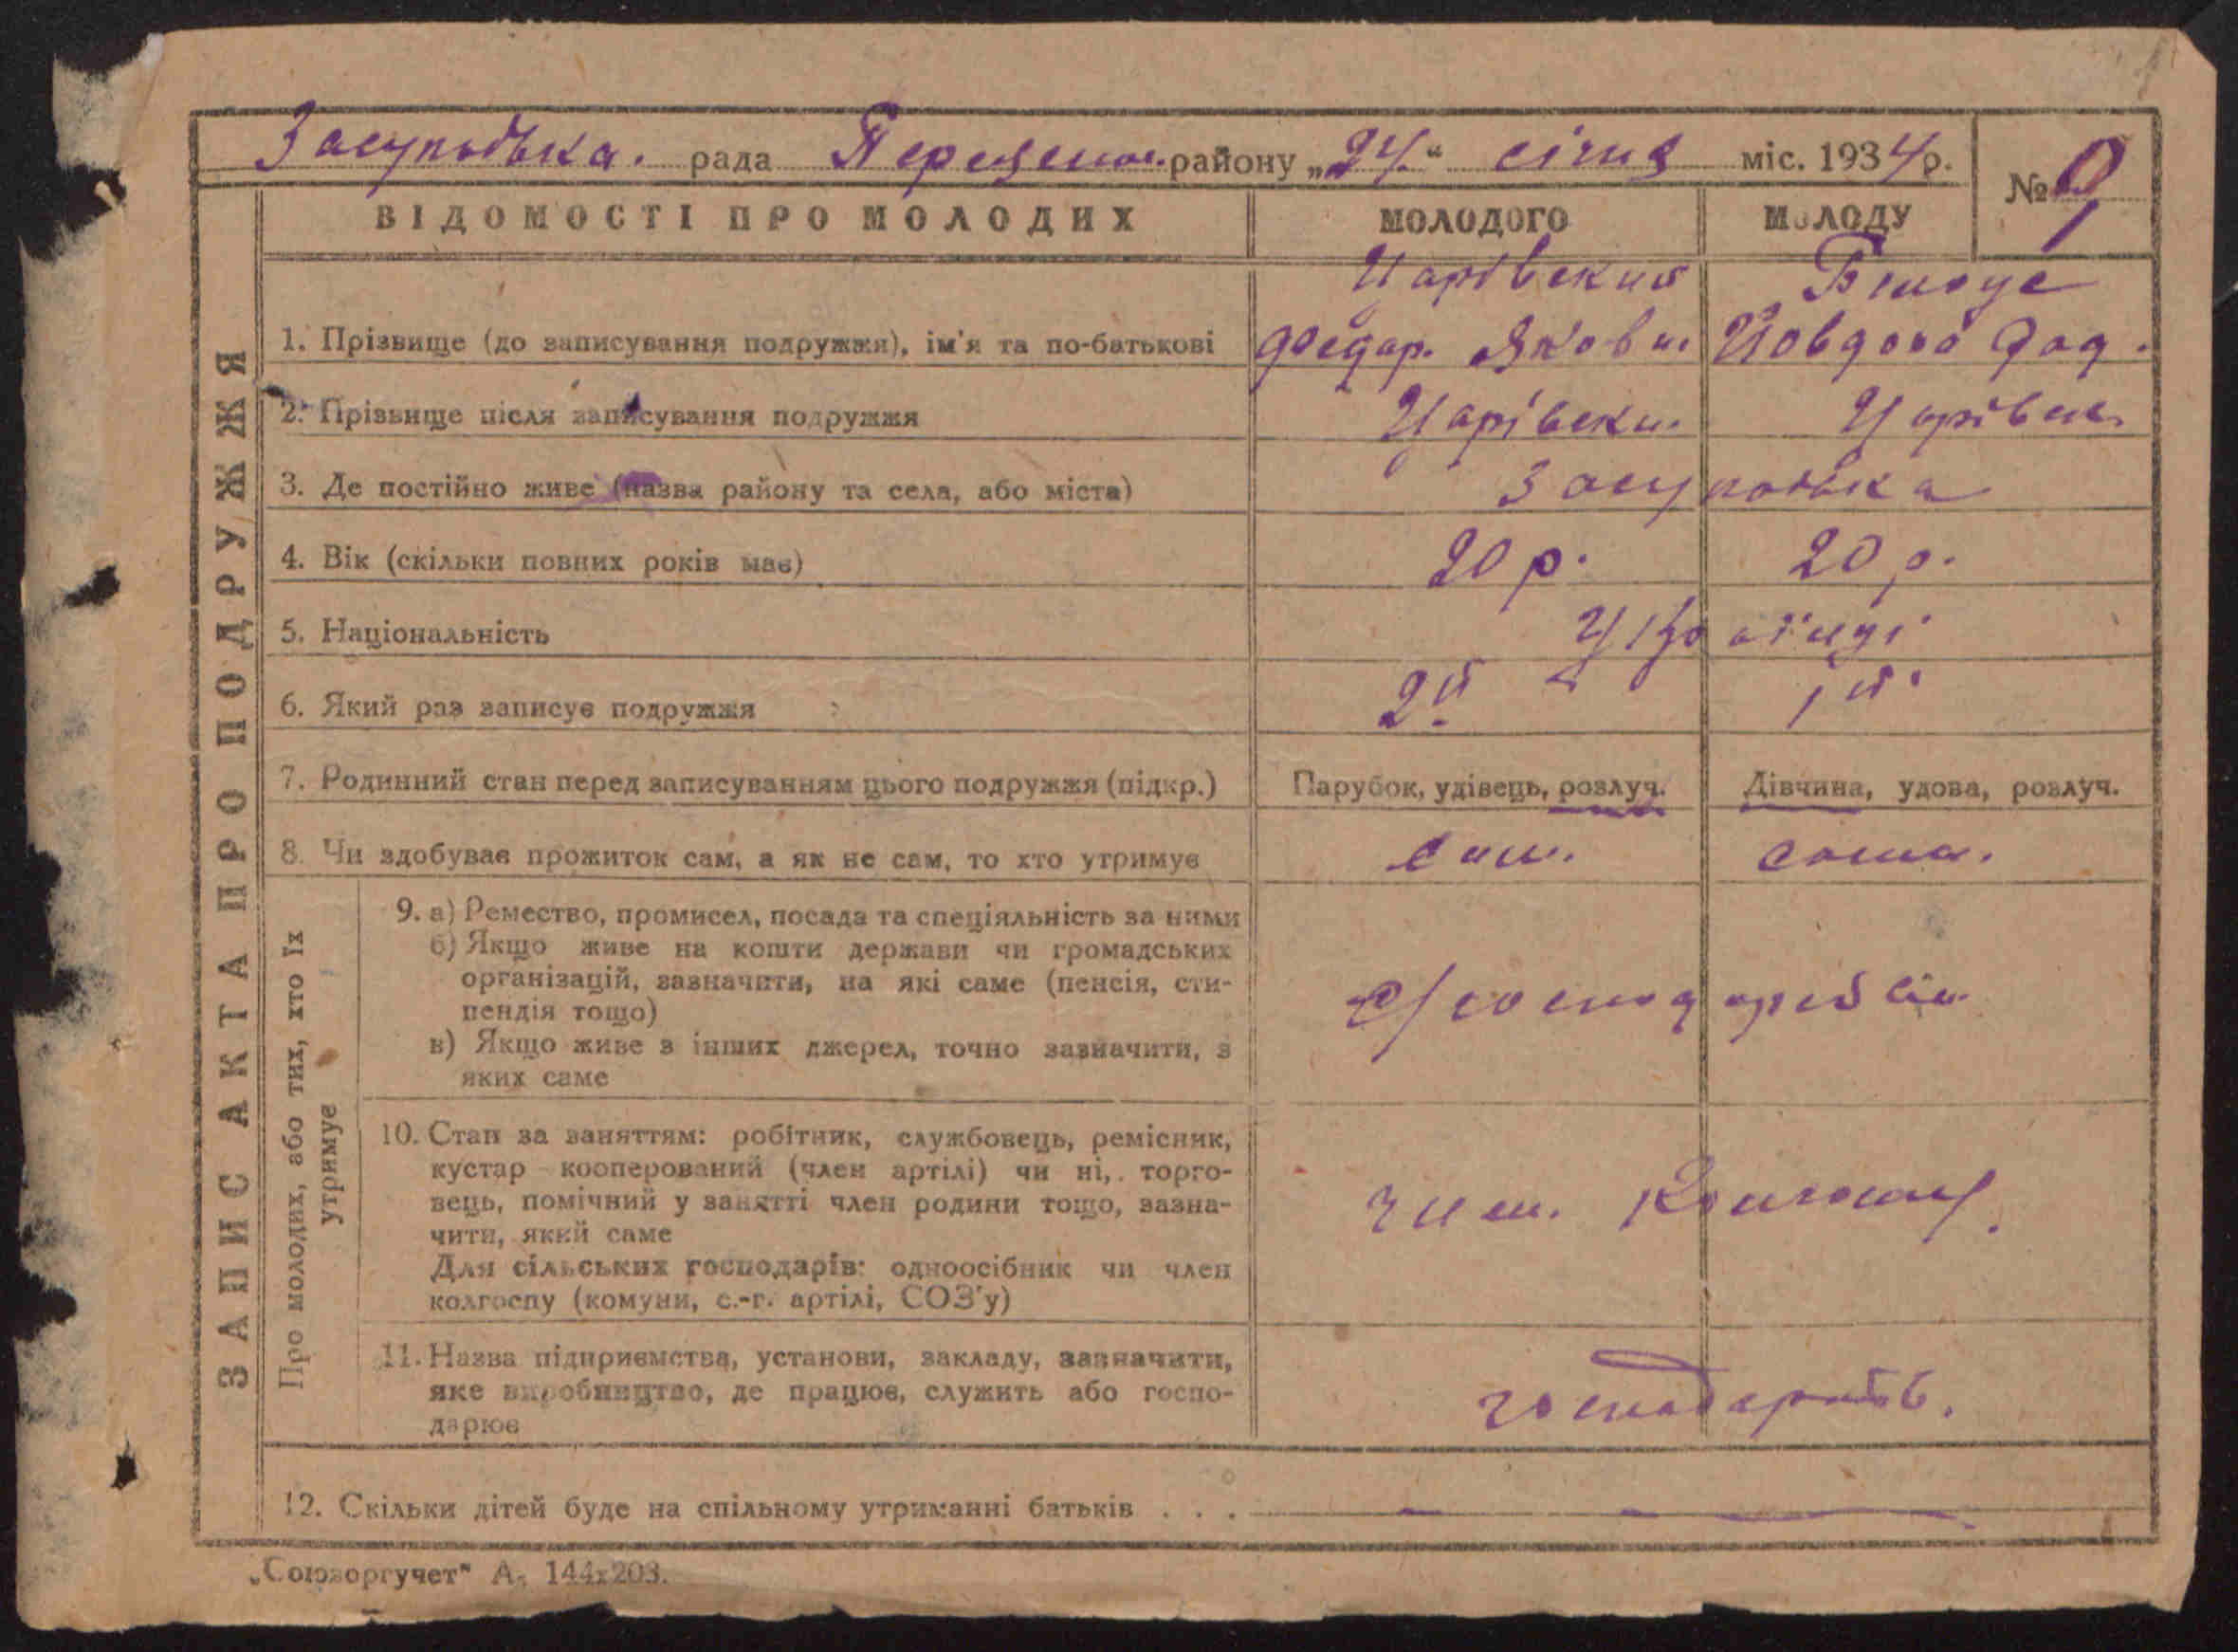 Засупоївка. рада Яреськ. району „24“ січня міс. 1934 р.
№ 9
ВІДОМОСТІ ПРО МОЛОДИХ МОЛОДОГО МОЛОДУ
Царівський
1. Прізвище (до записування подружжя), ім'я та по-батькові Федар. Якови.
2. Прізвище після записування подружжя Царівськи. Царівськ.
3. Де постійно живе (назва району та села, або міста) Засуповька
4. Вік (скільки повних років має) 20 р. 20 р.
5. Національність
6. Який раз записує подружжя 2й 1й
7. Родинний стан перед записуванням цього подружжя (підкр.) Парубок, удівець, розлуч. Дівчина, удова, розлуч.
8. Чи здобуває прожиток сам, а як не сам, то хто утримує сам. сама.
ЗАПИС АКТА ПРО ПОДРУЖЖЯ
Про молодих, або тих, хто їх
утримує
9. а) Ремество, промисел, посада та спеціяльність за ними
б) Якщо живе на кошти держави чи громадських
організацій, зазначити, на які саме (пенсія, сти-
пендія тощо)
в) Якщо живе з інших джерел, точно зазначити, з
яких саме
10. Стан за заняттям: робітник, службовець, ремісник,
кустар - кооперований (член артілі) чи ні, торго-
вець, помічний у занятті член родини тощо, зазна-
чити, який саме
Для сільських господарів: одноосібник чи член
колгоспу (комуни, с.-г. артілі, СОЗ'у)
член. Колгоспу.
11. Назва підприємства, установи, закладу, зазначити,
яке виробництво, де працює, служить або госпо-
дарює
господарств.
12. Скільки дітей буде на спільному утриманні батьків . . .
„Союзоргучет" А5 144х203.